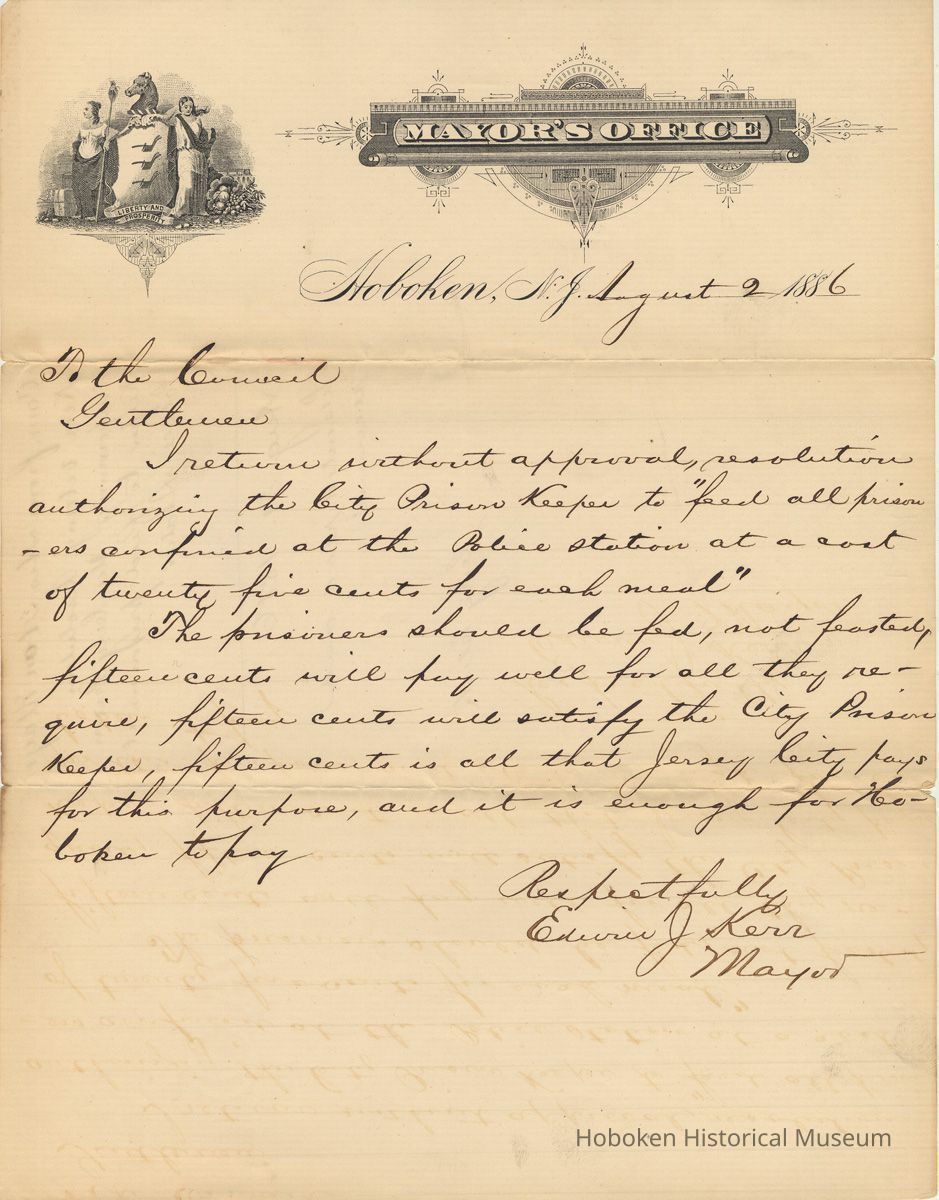 MAYOR'S OFFICE
LIBERTY AND
PROSPERITY
Hoboken, N.J. August 2 1886
To the Council
Gentlemen
I return without approval, resolution
authorizing the City Prison Keeper to "feed all prison
-ers confined at the Police station at a cost
of twenty five cents for each meal"
The prisoners should be fed, not feasted,
fifteen cents will pay well for all they re-
quire, fifteen cents will satisfy the City Prison
Keeper, fifteen cents is all that Jersey City pays
for this purpose, and it is enough for Ho-
boken to pay
Respectfully
Edwin J Kerr
Mayor
Hoboken Historical Museum